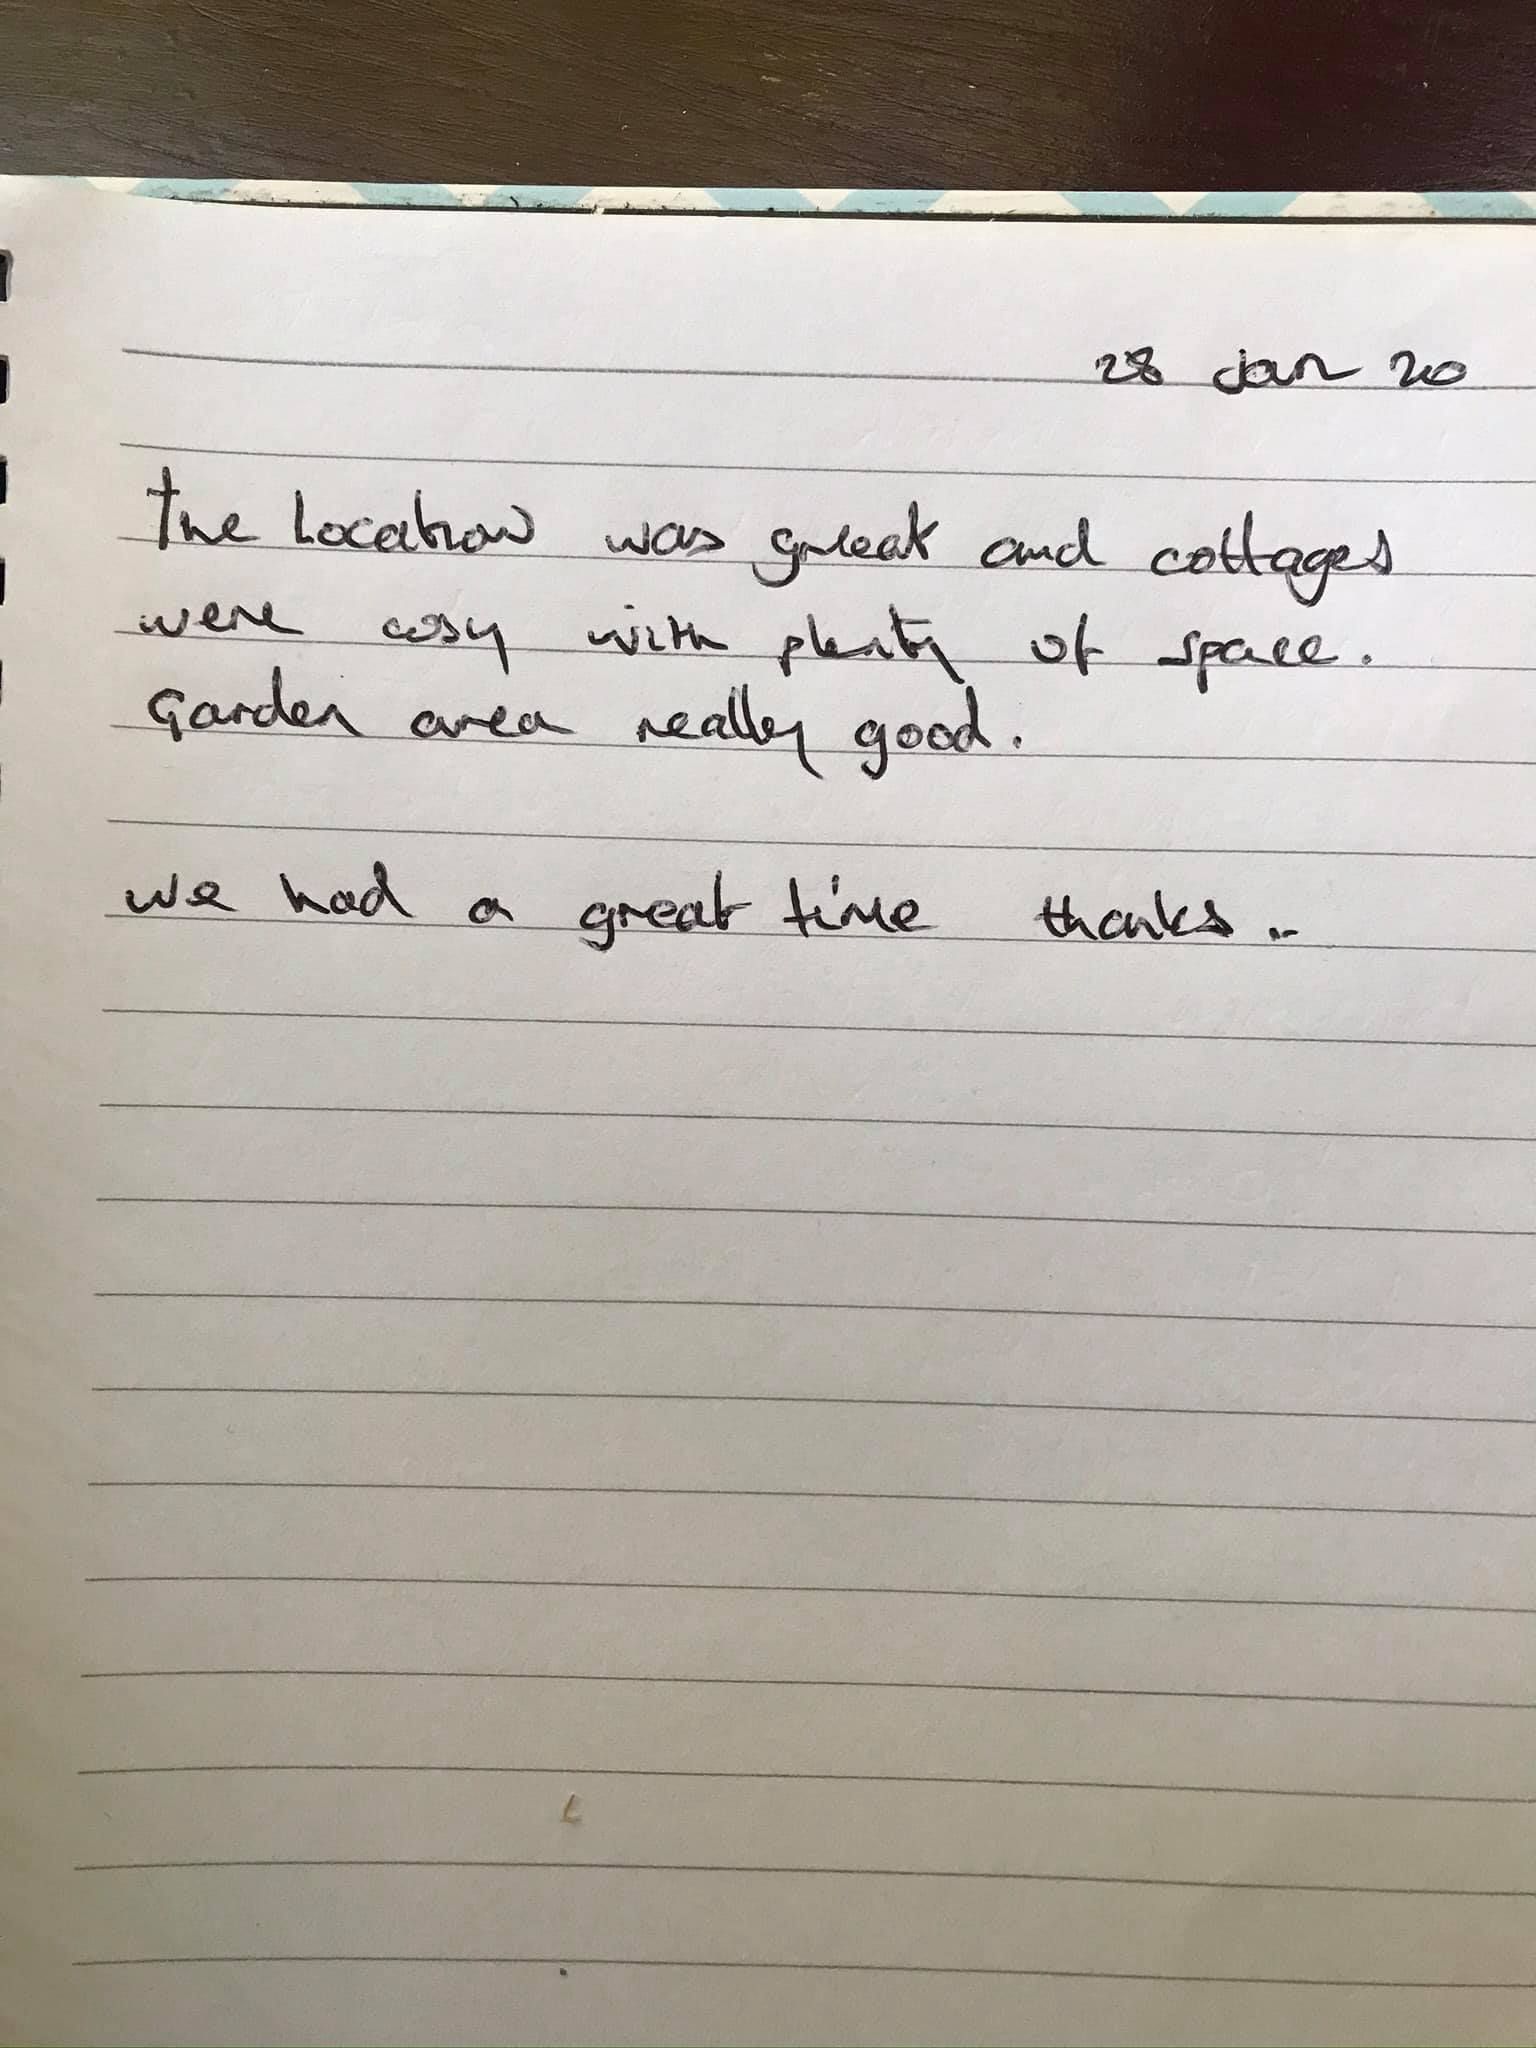 28 Jan 20
The Location was great and cottages
were cosy with plenty of space.
Garden area really good.
we had a great time thanks..